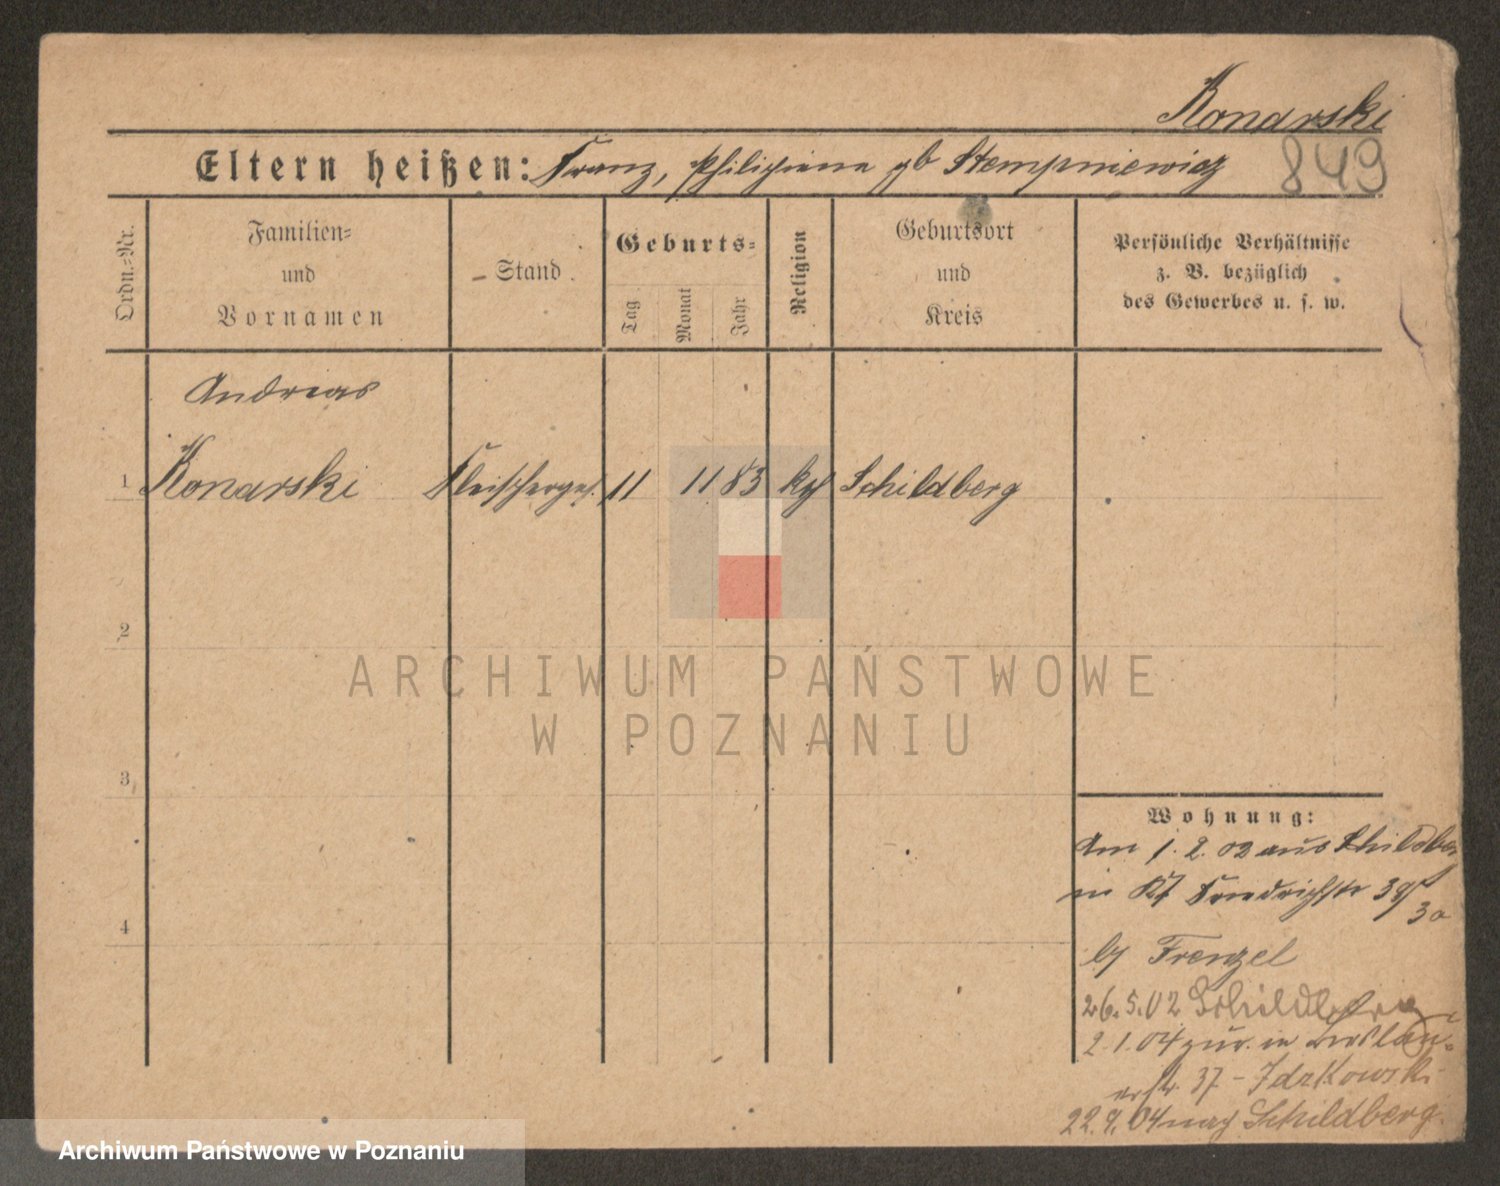 Konarski
Eltern heißen: Franz, Philipiena gb Stempniewicz
849
Ordn.-Nr.
Familien-
und
Vornamen
Stand
Geburts-
Tag
Monat
Jahr
Religion
Geburtsort
und
Kreis
Persönliche Verhältnisse
z. B. bezüglich
des Gewerbes u. s. w.
Andreas
1 Konarski Fleischerges. 11 11 83 kath Schildberg
2
3
4
Wohnung:
Am 1. 2. 02 aus Schildberg
in Friedrichstr 39/
30
by Frenzel
26.5.02 Schildberg
2.1.04 zur. in Breslau-
erstr. 37 - Idzkowski
22.9.04 nach Schildberg.
ARCHIWUM PAŃSTWOWE
W POZNANIU
Archiwum Państwowe w Poznaniu